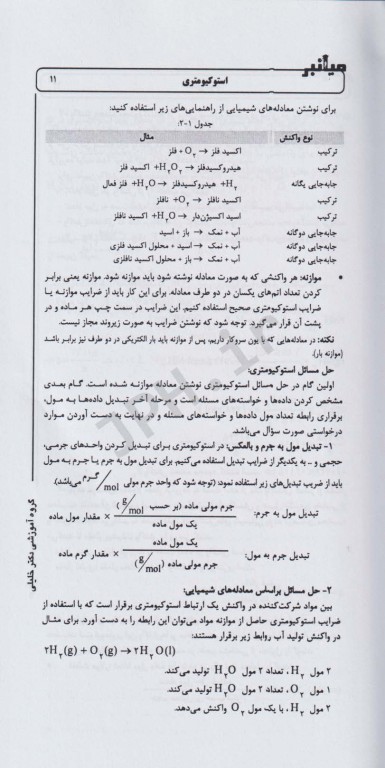 میانبر
استوکیومتری
۱۱
برای نوشتن معادله‌های شیمیایی از راهنمایی‌های زیر استفاده کنید:
جدول ۱-۲:
نوع واکنش مثال
ترکیب اکسید فلز → O₂ + فلز
ترکیب هیدروکسیدفلز → H₂O + اکسید فلز
جابه‌جایی یگانه H₂ + هیدروکسیدفلز → H₂O + فلز فعال
ترکیب اکسید نافلز → O₂ + نافلز
ترکیب اسید اکسیژن‌دار → H₂O + اکسید نافلز
جابه‌جایی دوگانه آب + نمک → باز + اسید
جابه‌جایی دوگانه آب + نمک → اسید + محلول اکسید فلزی
جابه‌جایی دوگانه آب + نمک → باز + محلول اکسید نافلزی
• موازنه: هر واکنشی که به صورت معادله نوشته شود باید موازنه شود. موازنه یعنی برابر
کردن تعداد اتم‌های یکسان در دو طرف معادله. برای این کار باید از ضرایب موازنه یا
ضرایب استوکیومتری صحیح استفاده کنیم. این ضرایب در سمت چپ هر ماده و در
پشت آن قرار می‌گیرد. توجه شود که نوشتن ضرایب به صورت زیروند مجاز نیست.
نکته: در معادله‌هایی که با یون سروکار داریم، پس از موازنه باید بار الکتریکی در دو طرف نیز برابر باشد
(موازنه بار).
حل مسائل استوکیومتری:
اولین گام در حل مسائل استوکیومتری نوشتن معادله موازنه شده است. گام بعدی
مشخص کردن داده‌ها و خواسته‌های مسئله است و مرحله آخر تبدیل داده‌ها به مول،
برقراری رابطه تعداد مول داده‌ها و خواسته‌های مسئله و در نهایت به دست آوردن موارد
درخواستی صورت سؤال می‌باشد.
۱- تبدیل مول به جرم و بالعکس: در استوکیومتری برای تبدیل کردن واحدهای جرمی،
حجمی و ... به یکدیگر از ضرایب تبدیل استفاده می‌کنیم. برای تبدیل مول به جرم یا جرم به مول
باید از ضریب تبدیل‌های زیر استفاده نمود: (توجه شود که واحد جرم مولی گرم/mol می‌باشد).
تبدیل مول به جرم: جرم مولی ماده (بر حسب g/mol) / یک مول ماده × مقدار مول ماده
تبدیل جرم به مول: یک مول ماده / جرم مولی ماده (g/mol) × مقدار گرم ماده
۲- حل مسائل براساس معادله‌های شیمیایی:
بین مواد شرکت‌کننده در واکنش یک ارتباط استوکیومتری برقرار است که با استفاده از
ضرایب استوکیومتری حاصل از موازنه مواد می‌توان این رابطه را به دست آورد. برای مثال
در واکنش تولید آب روابط زیر برقرار هستند:
۲H₂(g) + O₂(g) → ۲H₂O(l)
۲ مول H₂، تعداد ۲ مول H₂O تولید می‌کند.
۱ مول O₂، تعداد ۲ مول H₂O تولید می‌کند.
۲ مول H₂، با یک مول O₂ واکنش می‌دهد.
گروه آموزشی دکتر خلیلی